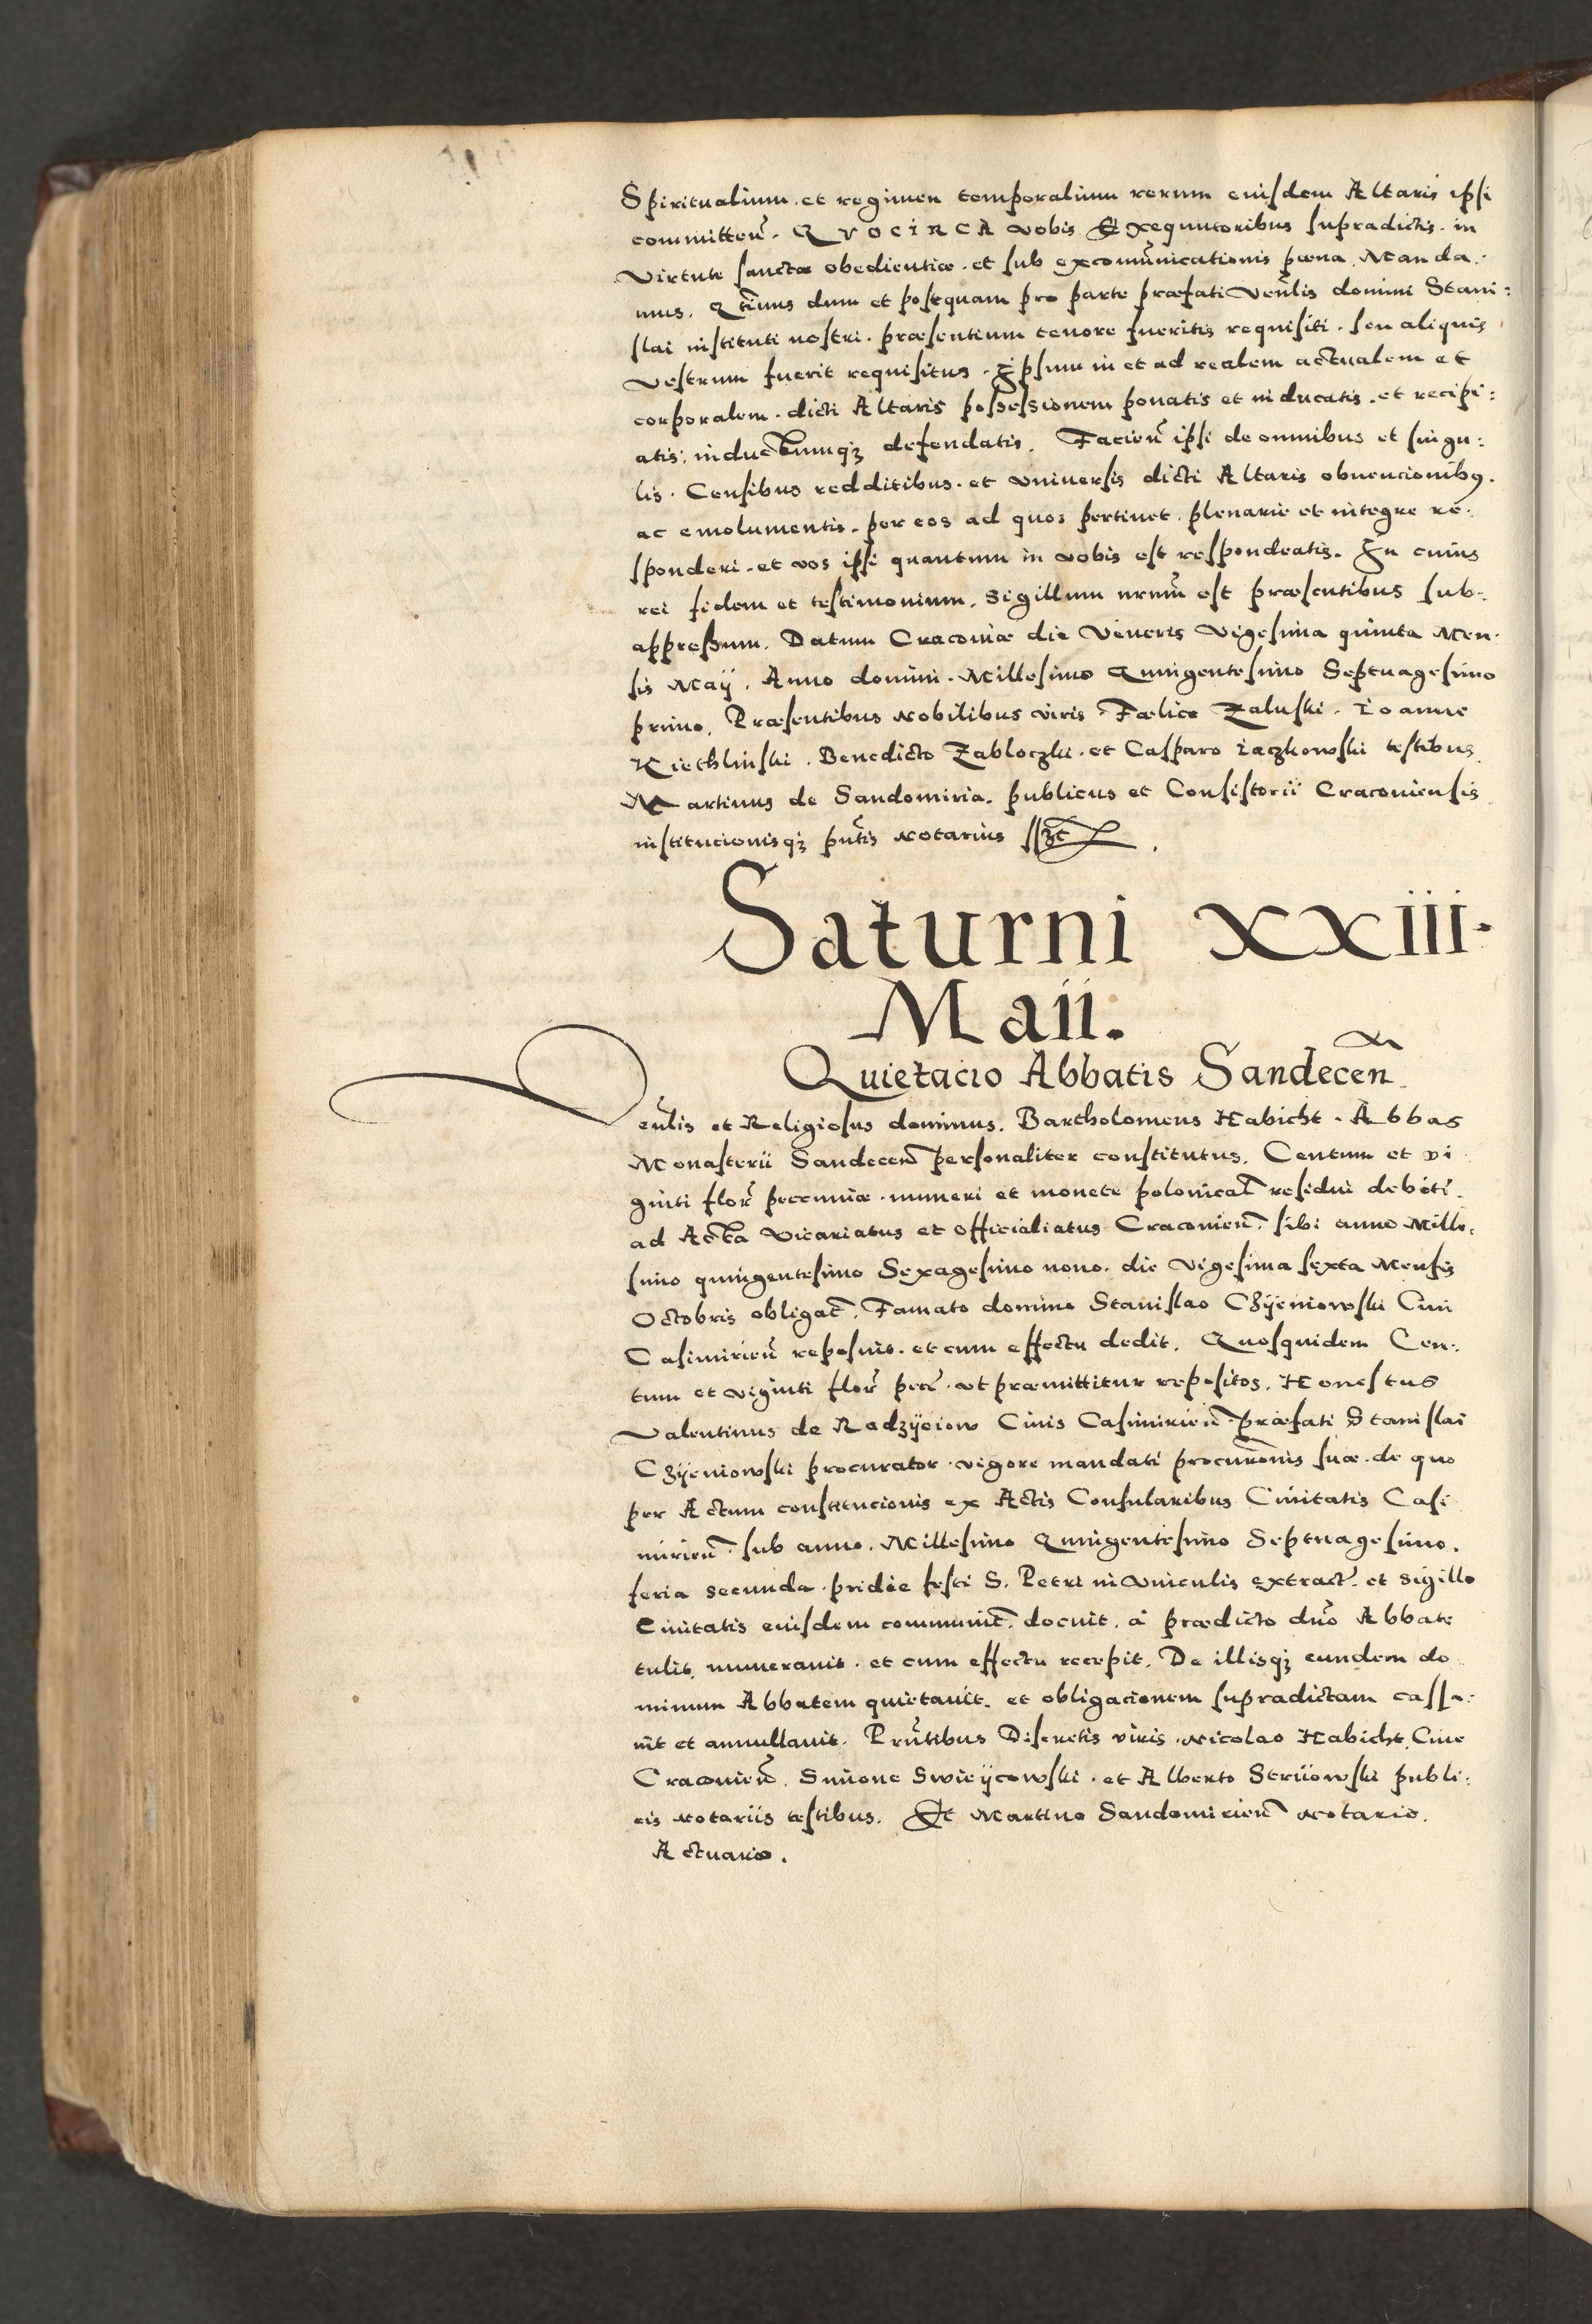 Spiritualium. et regimen temporalium rerum eiusdem Altaris ipsi
committen̄. QVOCIRCA vobis Exequutoribus supradictis. in
Virtute sanctæ obedientiæ. et sub excom̄unicationis pæna. Manda.
mus. Q̃tinus dum et postquam pro parte præfati Ven̄lis domini Stani:
slai instituti nostri. præsentium tenore fueritis requisiti. seu aliquis
vestrum fuerit requisitus. Ipsum in et ad realem actualem et
corporalem. dicti Altaris possessionem ponatis et inducatis. et recipi:
atis: inductumqꝫ defendatis. Facien̄ ipsi de omnibus et singu:
lis. Censibus redditibus. et vniuersis dicti Altaris obuencionibꝰ.
ac emolumentis. per eos ad quos pertinet. plenarie et integre re.
sponderi. et vos ipsi quantum in vobis est respondeatis. In cuius
rei fidem et testimonium. Sigillum nrum̄ est præsentibus sub.
appressum. Datum Cracouiæ die Veneris Vigesima quinta Men.
sis Maij. Anno domini. Millesimo Quingentesimo Septuagesimo
primo. Præsentibus Nobilibus viris. Fælice Zaluski. Ioanne
Kiethlinski. Benedicto Zabloczki. et Casparo Iaczkowski testibus
Martinus de Sandomiria. publicus et Consistorii Cracouiensis
institucionisqꝫ pn̄tis Notarius
Saturni XXIII.
Maii.
Quietacio Abbatis Sandecen̄
Ven̄lis et Religiosus dominus. Bartholomeus Habicht. Abbas
Monasterii Sandecen̄ personaliter constitutus. Centum et vi
ginti flor̄ pecuniæ. numeri et monete polonical̄ residui debiti.
ad Acta Vicariatus et officialiatus Cracouien̄. sibi anno Mille.
simo quingentesimo Sexagesimo nono. die Vigesima sexta Mensis
Octobris obligat̄. Famato domino Stanislao Chÿeniowski Ciui
Casimirien̄ reposuit. et cum effectu dedit. Quosquidem Cen.
tum et viginti flor̄ pec̄. vt præmittitur repositos. Honestus
Valentinus de Radzÿeiow Ciuis Casimirien̄. præfati Stanislai
Chÿeniowski procurator. vigore mandati procur̄onis suæ. de quo
per Actum constitucionis ex Actis Consularibus Ciuitatis Casi
mirien̄. sub anno. Millesimo Quingentesimo Septuagesimo.
feria secunda. pridie festi S. Petri in Vinculis extract̄. et sigillo
Ciuitatis eiusdem communit̄. docuit. à prædicto dn̄o Abbate
tulit. numerauit. et cum effectu recepit. De illisqꝫ eundem do
minum Abbatem quietauit. et obligacionem supradictam cassa.
uit et annullauit. Prn̄tibus Discretis viris. Nicolao Habicht. Ciue
Cracouien̄. Simone Swieÿcowski. et Alberto Striiowski publi:
cis Notariis testibus. Et Martino Sandomirien̄ Notario.
Actuario.